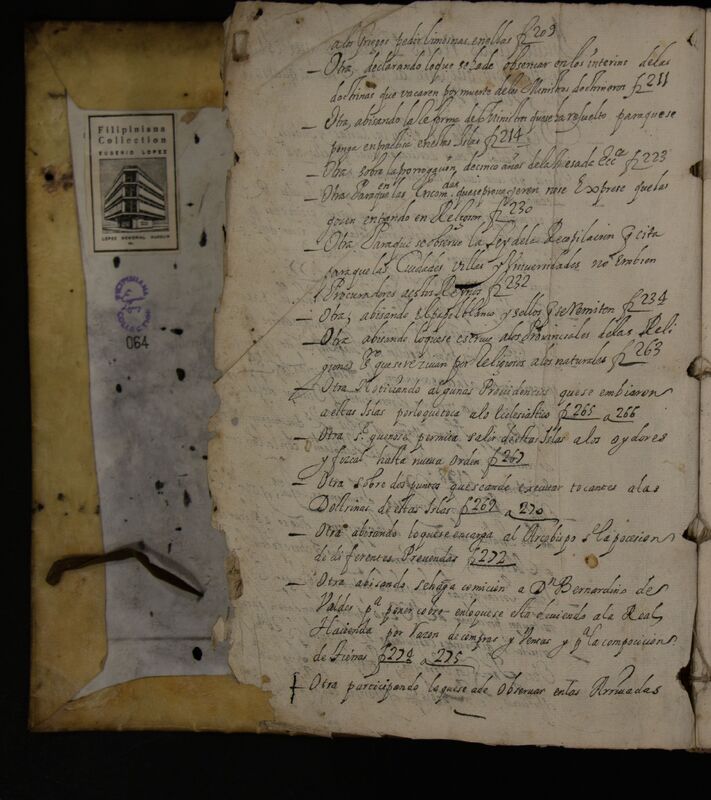 Filipiniana
Collection
EUGENIO LOPEZ
LOPEZ MEMORIAL MUSEUM
FILIPINIANA
COLLECTION
064
a los pedir limosnas, en ellas f 209
Otra, declarando loque sehade obserbar en los interins de las
doctrinas que vacaren por muerte de los Ministros doctrineros f 211
Otra, abisando la de Ministros que se ha resuelto para que se
ponga en practica en estas Islas f 214
Otra sobre la de cinco años de la Mesada f 223
Otra Para que las que se proveyeren Exprese que las
gosen en Religion f 230
Otra Para que se observe la Ley de la Recopilacion q cita
para que las Ciudades Villas y Vniversidades no embien
Procuradores a estos Reynos f 232
Otra, abisando el papel blanco y sellos q se remiten f 234
Otra abisando loquese escrive a los Provinciales de las Reli
giones por Religiosos a los naturales f 263
Otra Noticiando algunas Providencias quese embiaron
a estas Islas por loquetoca alo Ecleciastico f 265 a 266
Otra permita salir de estas Islas a los oydores
y fizcal hasta nueva orden f 267
Otra sobre dos puntos que se an de executar tocantes a las
Doctrinas de estas Islas f 269 a 270
Otra abisando loquese encarga al Arçobispo la pocesion
de diferentes Prevendas f 272
Otra abisando sehaga comición a Dn Bernardino de
Valdes pa poner cobro en loquese esta deviendo a la Real
Hacienda por razon de compras y Ventas y pa la composicion
de tierras f 274 a 275
Otra participando loquese ade Observar en las Arrivadas